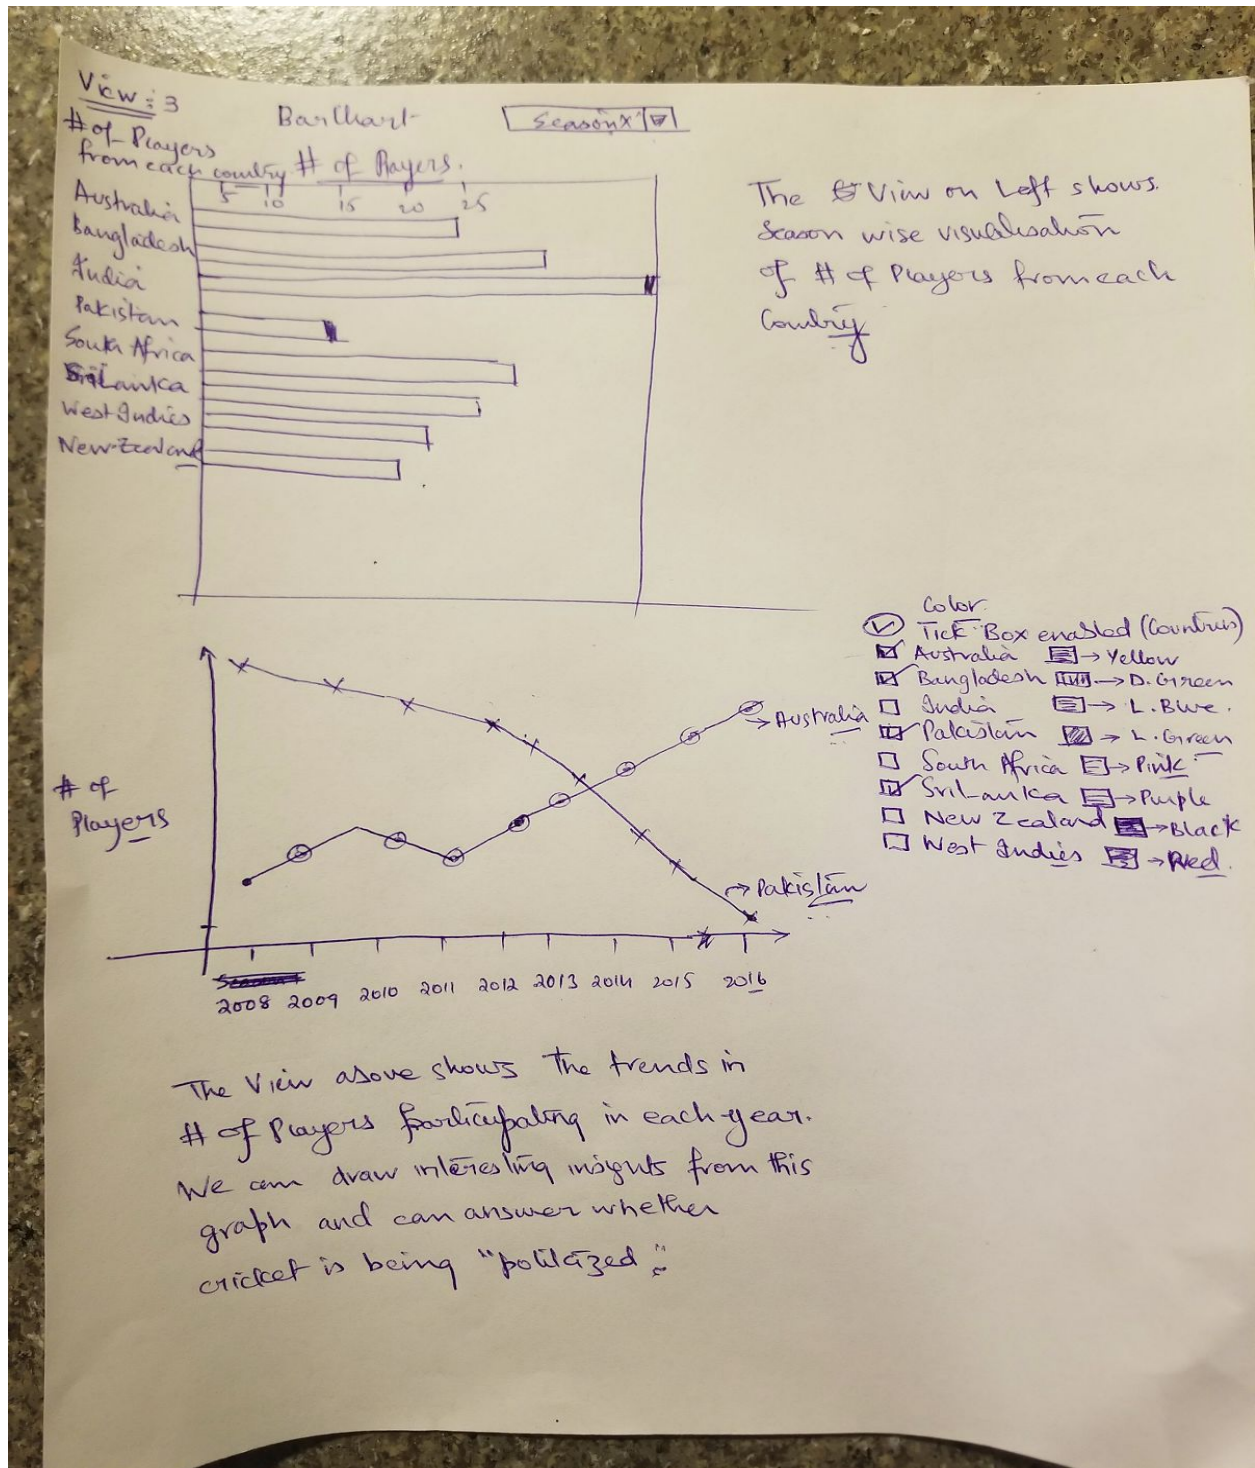 View: 3
# of Players
from each country
Bar Chart
Season X
# of Players.
5 10 15 20 25
Australia
Bangladesh
India
Pakistan
South Africa
Sri Lanka
West Indies
New-Zealand
The View on Left shows
Season wise visualisation
of # of Players from each
Country
Color
Tick Box enabled (Countries)
Australia → Yellow
Bangladesh → D. Green
India → L. Blue.
Pakistan → L. Green
South Africa → Pink
Sri Lanka → Purple
New Zealand → Black
West Indies → Red.
# of
Players
→ Australia
→ Pakistan
2008 2009 2010 2011 2012 2013 2014 2015 2016
The View above shows the trends in
# of Players participating in each year.
We can draw interesting insights from this
graph and can answer whether
cricket is being "politcized"